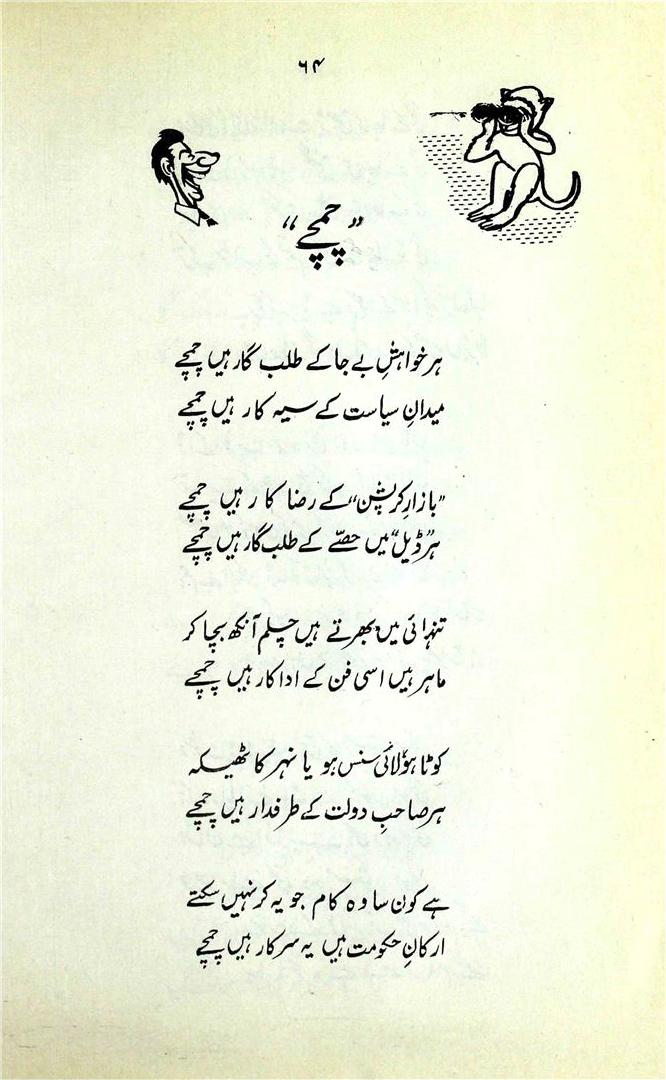 ۶۴
”چمچے“
ہر خواہشِ بے جا کے طلب گار ہیں چمچے
میدانِ سیاست کے سیہ کار ہیں چمچے
”بازارِ کرپشن“ کے رضا کار ہیں چمچے
ہر ”ڈیل“ میں حصّے کے طلب گار ہیں چمچے
تنہائی میں بھرتے ہیں چلم آنکھ بچا کر
ماہر ہیں اسی فن کے اداکار ہیں چمچے
کوٹا ہو لائی سنس ہو یا نہر کا ٹھیکہ
ہر صاحبِ دولت کے طرفدار ہیں چمچے
ہے کون سا وہ کام جو یہ کر نہیں سکتے
ارکانِ حکومت ہیں یہ سرکار ہیں چمچے